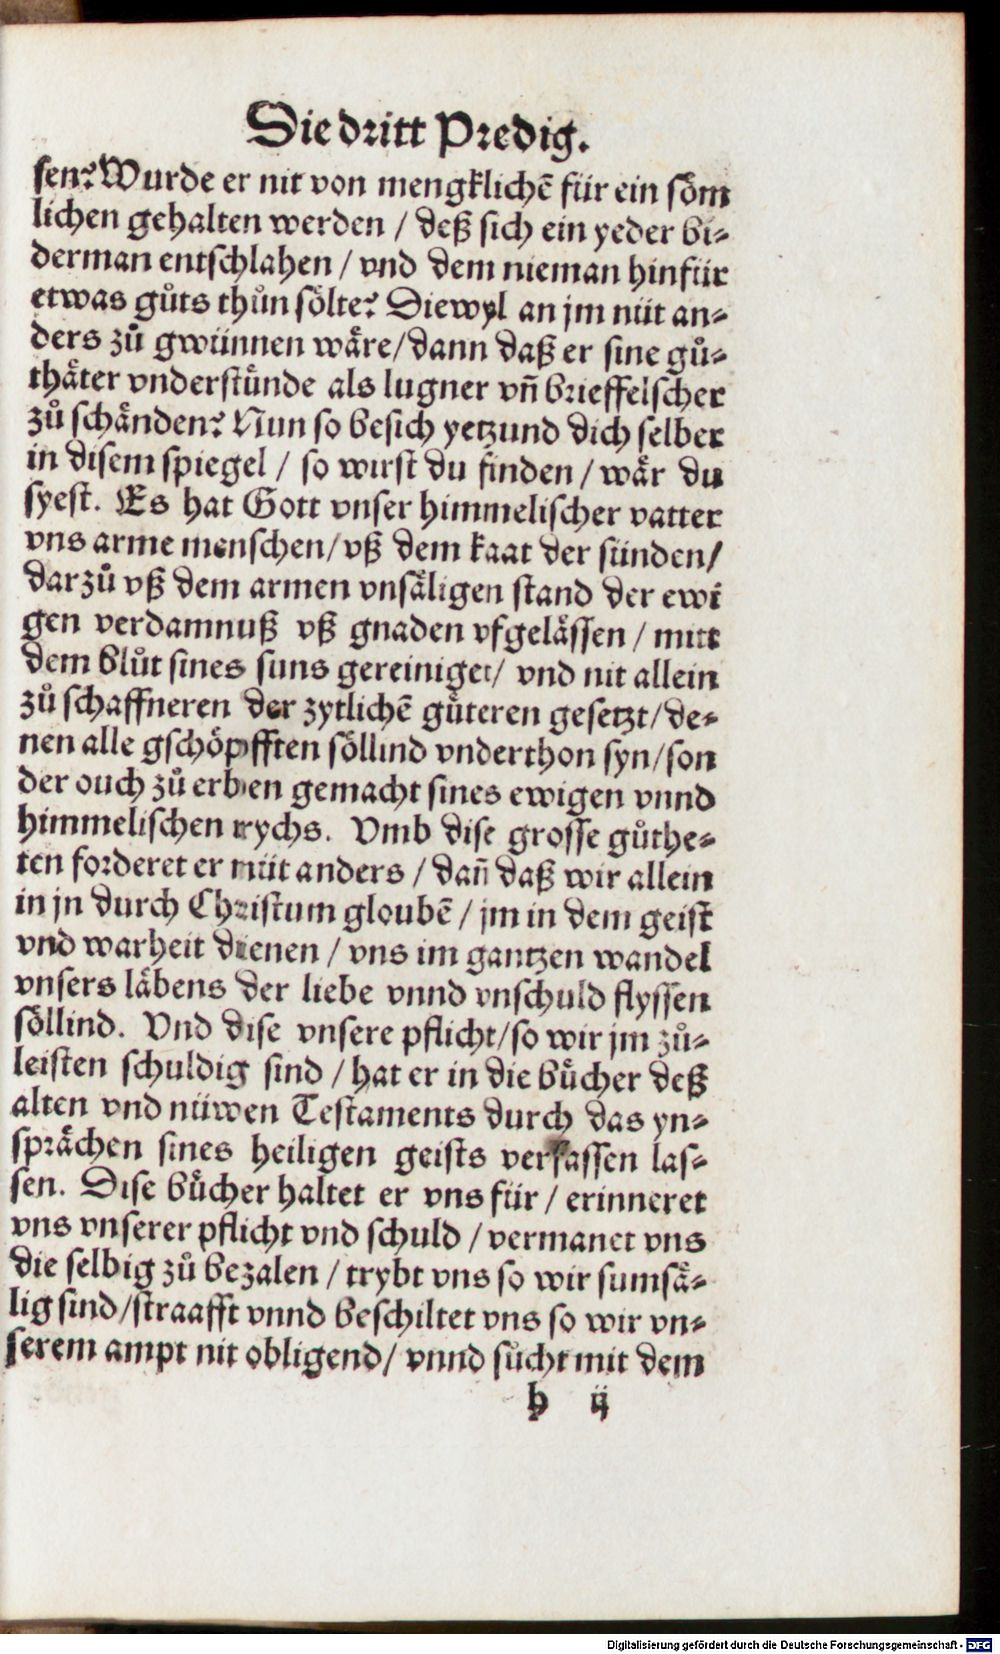 Die dritt Predig.
sen? Wurde er nit von mengklichẽ für ein söm
lichen gehalten werden / deß sich ein yeder bi⸗
derman entschlahen / vnd dem nieman hinfür
etwas gůts thůn sölte? Diewyl an jm nüt an⸗
ders zů gwünnen wäre / dann daß er sine gů⸗
thäter vnderstünde als lugner vñ brieffelscher
zů schänden? Nun so besich yetzund dich selber
in disem spiegel / so wirst du finden / wär du
syest. Es hat Gott vnser himmelischer vatter
vns arme menschen / vß dem kaat der sünden /
darzů vß dem armen vnsäligen stand der ewi
gen verdamnuß vß gnaden vfgelässen / mitt
dem blůt sines suns gereiniget / vnd nit allein
zů schaffneren der zytlichẽ gůteren gesetzt / de⸗
nen alle gschöpfften söllind vnderthon syn / son
der ouch zů erben gemacht sines ewigen vnnd
himmelischen rychs. Vmb dise grosse gůthe⸗
ten forderet er nüt anders / dañ daß wir allein
in jn durch Christum gloubẽ / jm in dem geist
vnd warheit dienen / vns im gantzen wandel
vnsers läbens der liebe vnnd vnschuld flyssen
söllind. Vnd dise vnsere pflicht / so wir jm zů⸗
leisten schuldig sind / hat er in die bücher deß
alten vnd nüwen Testaments durch das yn⸗
sprächen sines heiligen geists verfassen las⸗
sen. Dise bücher haltet er vns für / erinneret
vns vnserer pflicht vnd schuld / vermanet vns
die selbig zů bezalen / trybt vns so wir sumsä⸗
lig sind / straafft vnnd beschiltet vns so wir vn⸗
serem ampt nit obligend / vnnd sůcht mit dem
h ij
Digitalisierung gefördert durch die Deutsche Forschungsgemeinschaft - DFG